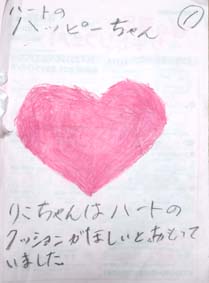 ①
ハートの
ハッピーちゃん
りこちゃんはハートの
クッションがほしいとおもって
いました